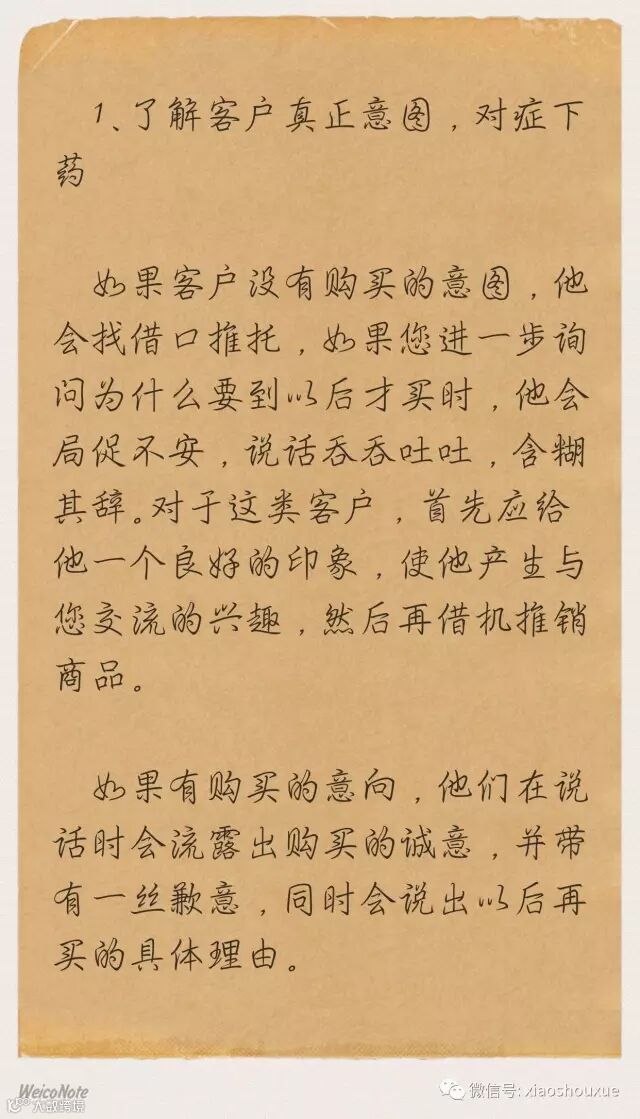 1、了解客户真正意图，对症下
药
如果客户没有购买的意图，他
会找借口推托，如果您进一步询
问为什么要到以后才买时，他会
局促不安，说话吞吞吐吐，含糊
其辞。对于这类客户，首先应给
他一个良好的印象，使他产生与
您交流的兴趣，然后再借机推销
商品。
如果有购买的意向，他们在说
话时会流露出购买的诚意，并带
有一丝歉意，同时会说出以后再
买的具体理由。
WeicoNote
大数跨境
微信号: xiaoshouxue